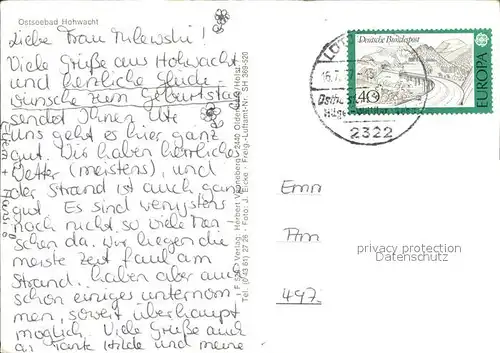 Ostseebad Hohwacht
Liebe Frau
Viele Grüße aus Hohwacht
und herzliche Glück-
wünsche zum Geburtstag
sendet Ihnen Ute
Uns geht es hier ganz
gut. Wir haben herrliches
Wetter (meistens), und
der Strand ist auch ganz
gut. Es sind wenigstens
noch nicht so viele Men
schen da. Wir liegen die
meiste Zeit faul am
Strand, haben aber auch
schon einiges unternom
men, soweit überhaupt
möglich. Viele Grüße auch
an Tante Hilde und meine
Verlag: Herbert 2440 Oldenburg/Holstein
Tel. (0 43 61) 27 26 · Foto: J. Eicke · Freig.-Luftamt-Nr. SH 369-520
Deutsche Bundespost
40
EUROPA
16.7.
2322
privacy protection
Datenschutz
497